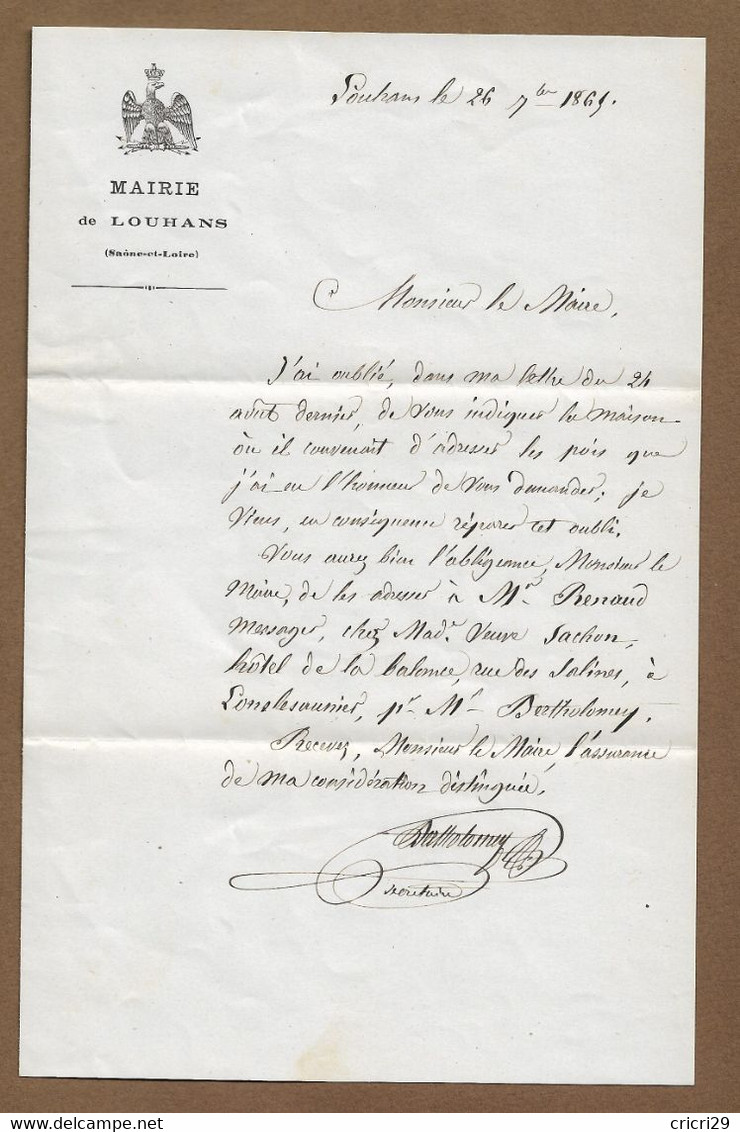 Louhans le 26 7bre 1865.
MAIRIE
de LOUHANS
(Saône-et-Loire)
Monsieur le Maire,
J'ai oublié, dans ma lettre du 24
août dernier, de vous indiquer la maison
où il convenait d'adresser les pois que
j'ai eu l'honneur de vous demander; je
viens, en conséquence réparer cet oubli.
Vous aurez bien l'obligeance, Monsieur le
Maire, de les adresser à Mr. Renaud
Messager, chez Made. Veuve Jachon,
hôtel de la balance, rue des Salines, à
Lonslesaunier, pr. Mr Bertholomey.
Recevez, Monsieur le Maire, l'assurance
de ma considération distinguée.
Bertholomey
secrétaire
delcampe.net
cricri29